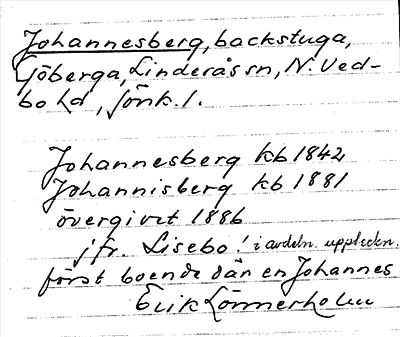 Johannesberg, backstuga,
Göberga, Linderås sn, N. Ved-
bo hd, Jönk. l.
Johannesberg kb 1842
Johannisberg kb 1881
övergivet 1886
jfr. Lisebo! i avdeln. uppteckn.
först boende där en Johannes
Erik Lönnerholm